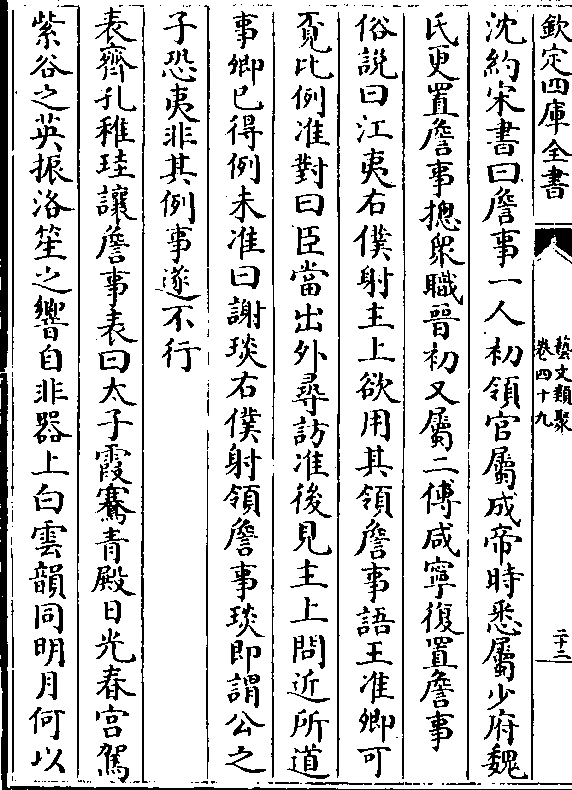 欽定四庫全書
藝文類聚
卷四十九
二十二
沈約宋書曰詹事一人初領官屬成帝時悉屬少府魏
氏更置詹事揔衆職晉初又屬二傅咸寧復置詹事
俗說曰江夷右僕射主上欲用其領詹事語王准卿可
覓比例准對曰臣當出外尋訪准後見主上問近所道
事卿已得例未准曰謝琰右僕射領詹事琰即謂公之
子恐夷非其例事遂不行
表齊孔稚珪讓詹事表曰太子霞騫青殿日光春宫駕
紫谷之英振洛笙之響自非器上白雲韻同明月何以